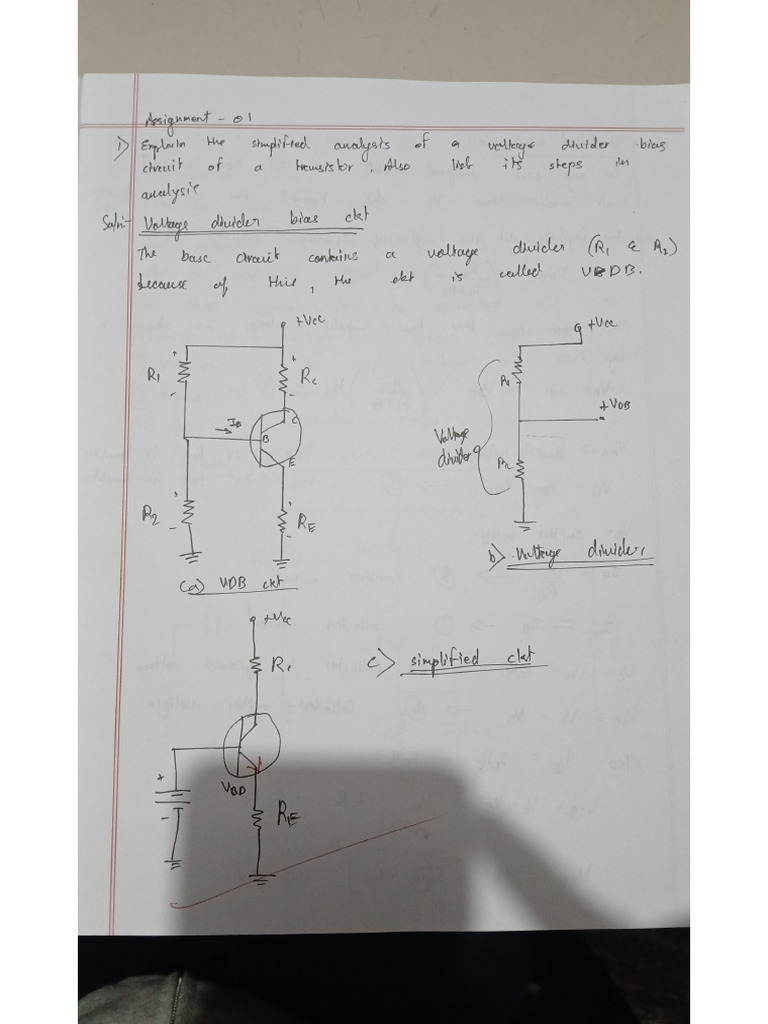 Assignment - 01
1) Explain the simplified analysis of a voltage divider bias
circuit of a transistor. Also list its steps in
analysis
Soln:- Voltage divider bias ckt
The base circuit contains a voltage divider (R1 & R2)
because of this, the ckt is called VBDB.
+Vcc
R1
+
-
+
RC
-
IB
B
C
E
R2
+
-
+
RE
-
(a) VDB ckt
+Vcc
R1
+VBB
Voltage
divider
R2
b) Voltage divider
+Vcc
Rc
c) simplified ckt
+
-
VBB
RE